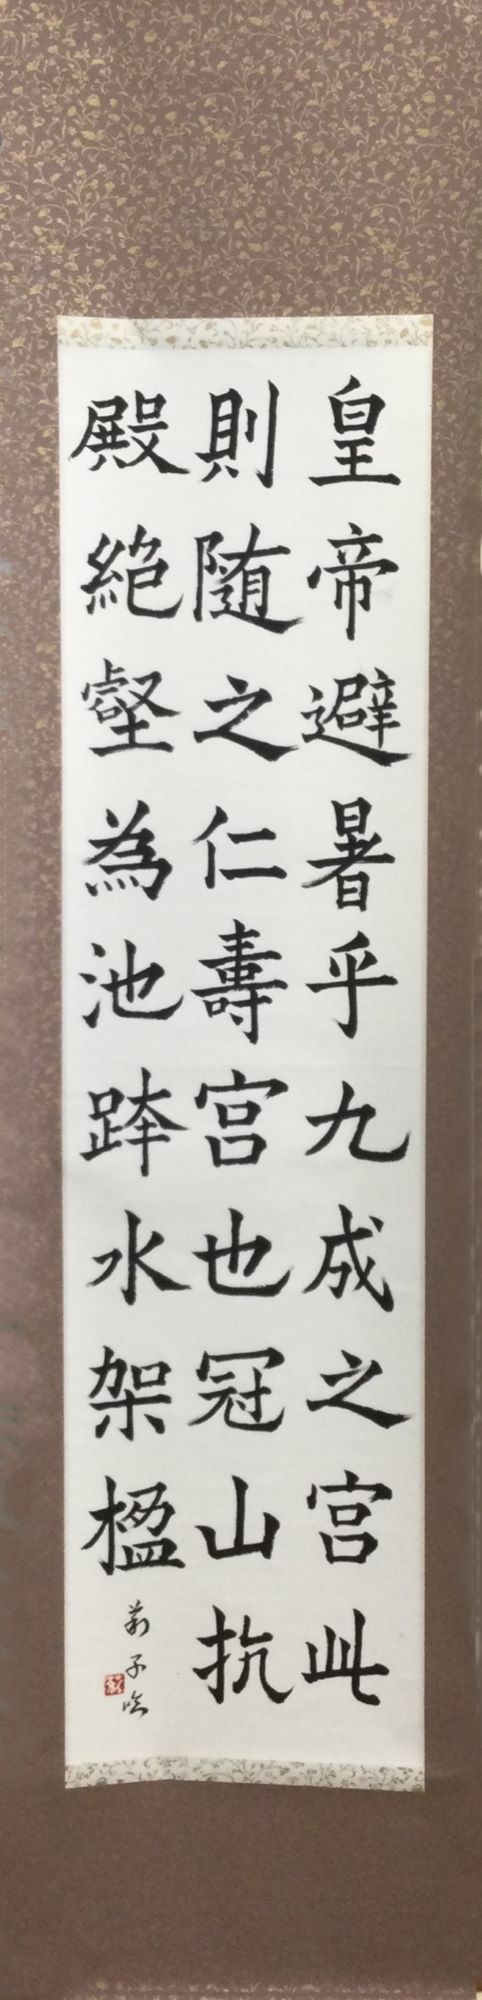 皇帝避暑乎九成之宮此
則随之仁壽宮也冠山抗
殿絶壑為池跨水架楹
子臨